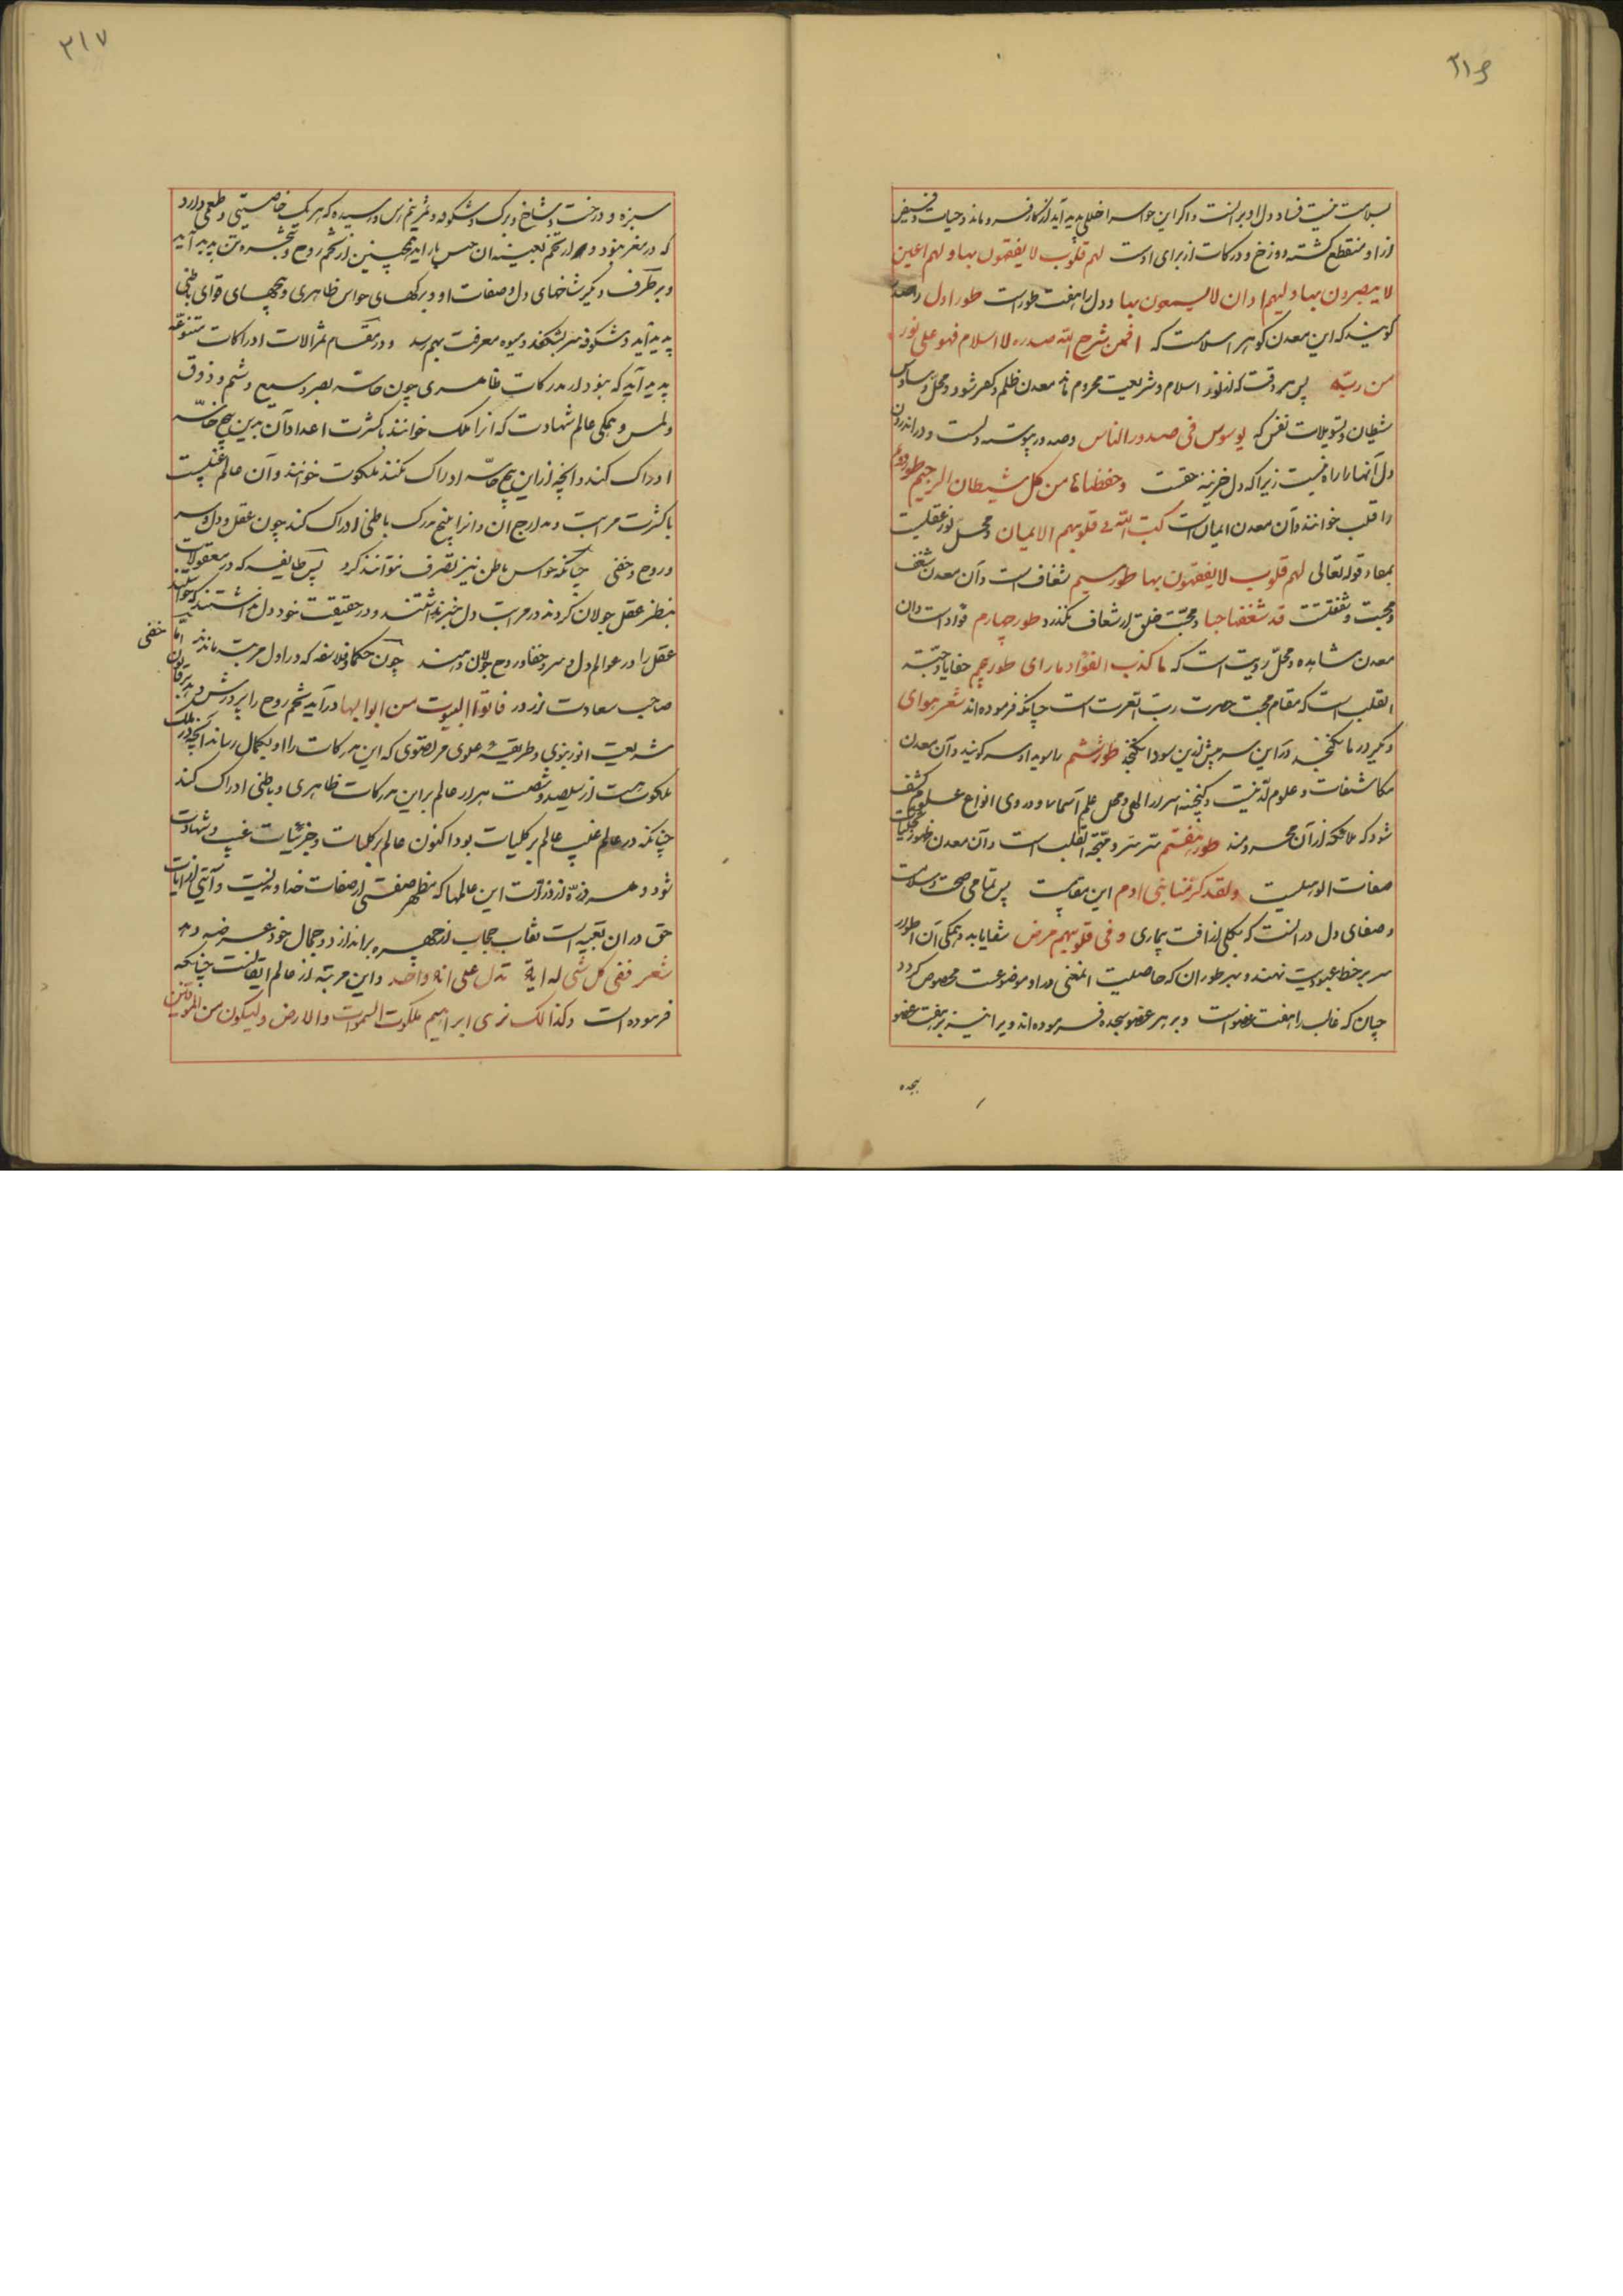 ۲۱۶
بسلامت نیست فساد دل او بر آنست و اگر این حواس را خللی پدید آید از کار فرو ماند و حیات و فیض
از او منقطع گشته دوزخ و درکات از برای اوست لهم قلوب لا یفقهون بها و لهم اعین
لا یبصرون بها و لهم اذان لا یسمعون بها و دل را هفت طور است طور اول را صدر
گویند که این معدن گوهر اسلامست که افمن شرح الله صدره للاسلام فهو علی نور
من ربه پس هر وقت که از نور اسلام و شریعت محروم ماند معدن ظلم و کفر شود و محل وساوس
شیطان و تسویلات نفس که یوسوس فی صدور الناس و صدر پوست دلست و در اندرون
دل آنها را راه نیست زیرا که دل خزینه حقست و حفظناها من کل شیطان الرجیم طور دوم
را قلب خوانند و آن معدن ایمان است کتب الله فی قلوبهم الایمان و محل نور عقلیت
قوله تعالی لهم قلوب لا یفقهون بها طور سیم شغاف است و آن معدن شغف
و محبت و شفقتت قد شغفها حبا و محبت خلق از شغاف نگذرد طور چهارم فواد است و آن
معدن مشاهده و محل رویت است که ما کذب الفؤاد ما رای طور پنجم
القلب است که مقام محبت حضرت رب العزت است چنانکه فرموده‌اند شعر هوای
دگر در ما نگنجد در این سر بیش ازین سودا نگنجد طور ششم را سویدا و سر گویند و آن معدن
مکاشفات و علوم لدنیست و گنجینه اسرار الهی و محل علم اسما و در وی انواع علوم کشف
شود که ملائکه از آن محرومند طور هفتم سر سر و مهجة القلب است و آن معدن ظهور تجلیات
صفات الوهیت و لقد کرمنا بنی ادم این مقامیست پس تمامی صحت و سلامت
و صفای دل در آنست که بکلی از آفت بیماری و فی قلوبهم مرض شفا یابد و همگی آن اطوار
سر بر خط عبودیت نهند و بهر طور آن که خاصیت المغنی در او موضوعست مخصوص گردد
چنان که قالب را هفت عضو است و بر هر عضو سجده فرموده‌اند ویرا نیز بر هفت عضو
سجده
۲۱۷
سبزه و درخت و شاخ و برگ و شکوفه و ثمر نیم رس و رسیده که هر یک خاصیتی و طعمی دارد
که در مغز نبود و از تخم بعینه آن جنس باز آید همچنین از تخم روح و شجره تن پدید آید
و بر طرف دیگر شاخهای دل و صفات او و برگهای حواس ظاهری و بیخهای قوای باطنی
پدید آید و شکوفه سر بشکفد و میوه معرفت بهم رسد و در مقام ثمر آلات ادراکات متنوعه
پدید آید که نبود از مدرکات ظاهری چون حاسه بصر و سمع و شم و ذوق
و لمس و همگی عالم شهادت که آنرا ملک خوانند با کثرت اعداد آن بدین پنج حاسه
ادراک کند و آنچه از این پنج حاسه ادراک نکند ملکوت خوانند و آن عالم غیبست
با کثرت مراتب و مدارج آن و آنرا پنج مدرک باطنی ادراک کند چون عقل و دل و سر
و روح و خفی چنانکه حواس باطن نیز تصرف نتوانند کرد پس طایفه که در معقولات
بنظر عقل جولان کردند در مراتب دل خبر نداشتند و در حقیقت خود دل نداشتند که خواستند
عقل را در عوالم دل و سر و خفا و روح جولان دهند چون حکما و فلاسفه که در اول مرتبه ماندند اما خفی
صاحب سعادت از در فاتوا البیوت من ابوابها درآید تخم روح را پرورش دهد بر قانون
شریعت انور نبوی و طریقه علوی مرتضوی که این مدرکات را او بکمال رساند آنچه در ملک
ملکوت هست از سیصد و شصت هزار عالم بر این مدرکات ظاهری و باطنی ادراک کند
چنانکه در عالم غیب عالم بر کلیات بود اکنون عالم بر کلیات و جزئیات غیب و شهادت
شود و هر ذره از ذرات این عالمها که مظهر صفتی از صفات خداوندیست و آیتی از آیات
حق در آن تعبیه است نقاب حجاب از چهره براندازد و جمال خود عرضه دهد
شعر ففی کل شی له ایة تدل علی انه واحد و این مرتبه از عالم ایقانست چنانکه
فرموده است و کذالک نری ابراهیم ملکوت السموات و الارض و لیکون من الموقنین